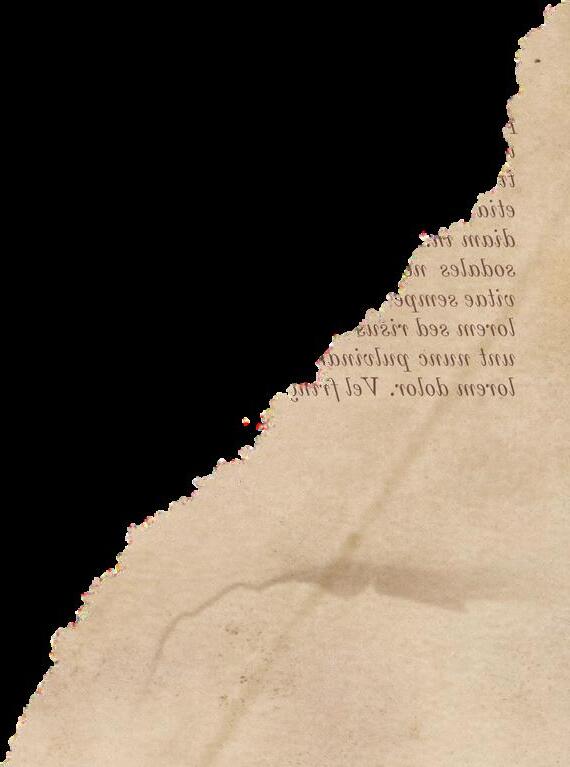 etia
diam in
sodales ne
vitae sempe
lorem sed risus
unt nunc pulvinar
lorem dolor. Vel fring